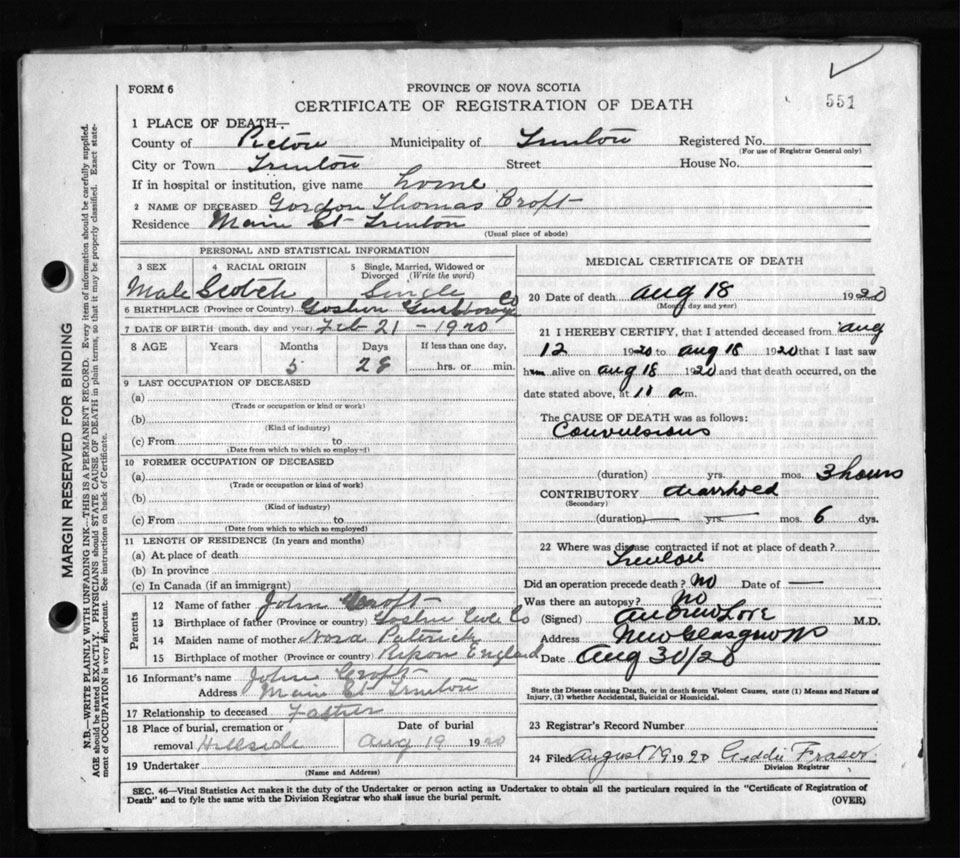 FORM 6
PROVINCE OF NOVA SCOTIA
551
CERTIFICATE OF REGISTRATION OF DEATH
1 PLACE OF DEATH—
County of Pictou Municipality of Trenton Registered No.
(For use of Registrar General only)
City or Town Trenton Street House No.
If in hospital or institution, give name home
2 NAME OF DECEASED Gordon Thomas Croft
Residence Main St Trenton
(Usual place of abode)
PERSONAL AND STATISTICAL INFORMATION
3 SEX 4 RACIAL ORIGIN 5 Single, Married, Widowed or Divorced (Write the word)
Male Scotch Single
6 BIRTHPLACE (Province or Country) Goshen Co
7 DATE OF BIRTH (month, day and year) Feb 21 - 1920
8 AGE Years Months Days If less than one day,
5 28 hrs. or min.
9 LAST OCCUPATION OF DECEASED
(a)
(Trade or occupation or kind or work)
(b)
(Kind of industry)
(c) From to
(Date from which to which so employed)
10 FORMER OCCUPATION OF DECEASED
(a)
(Trade or occupation or kind or work)
(b)
(Kind of industry)
(c) From to
(Date from which to which so employed)
11 LENGTH OF RESIDENCE (In years and months)
(a) At place of death
(b) In province
(c) In Canada (if an immigrant)
Parents
12 Name of father John Croft
13 Birthplace of father (Province or country) Goshen Co
14 Maiden name of mother Nora Patrick
15 Birthplace of mother (Province or country) Ripon England
16 Informant's name John Croft
Address Main St Trenton
17 Relationship to deceased Father
18 Place of burial, cremation or removal Hillside Date of burial Aug 19 1920
19 Undertaker
(Name and Address)
MEDICAL CERTIFICATE OF DEATH
20 Date of death Aug 18 1920
(Month, day and year)
21 I HEREBY CERTIFY, that I attended deceased from Aug
12 1920 to Aug 18 1920 that I last saw
him alive on Aug 18 1920 and that death occurred, on the
date stated above, at 11 a m.
The CAUSE OF DEATH was as follows:
Convulsions
(duration) yrs. mos. 3 hours
CONTRIBUTORY diarrhoea
(Secondary)
(duration) yrs. mos. 6 dys.
22 Where was disease contracted if not at place of death?
Trenton
Did an operation precede death? No Date of —
Was there an autopsy? No
(Signed) Andrew Love M.D.
Address New Glasgow NS
Date Aug 30/20
State the Disease causing Death, or in death from Violent Causes, state (1) Means and Nature of
Injury, (2) whether Accidental, Suicidal or Homicidal.
23 Registrar's Record Number
24 Filed August 19 1920 Geddie Fraser
Division Registrar
SEC. 46—Vital Statistics Act makes it the duty of the Undertaker or person acting as Undertaker to obtain all the particulars required in the "Certificate of Registration of
Death" and to fyle the same with the Division Registrar who shall issue the burial permit. (OVER)
MARGIN RESERVED FOR BINDING
N.B.—WRITE PLAINLY WITH UNFADING INK—THIS IS A PERMANENT RECORD. Every item of information should be carefully supplied.
AGE should be stated EXACTLY. PHYSICIANS should STATE CAUSE OF DEATH in plain terms, so that it may be properly classified. Exact state-
ment of OCCUPATION is very important. See instructions on back of Certificate.